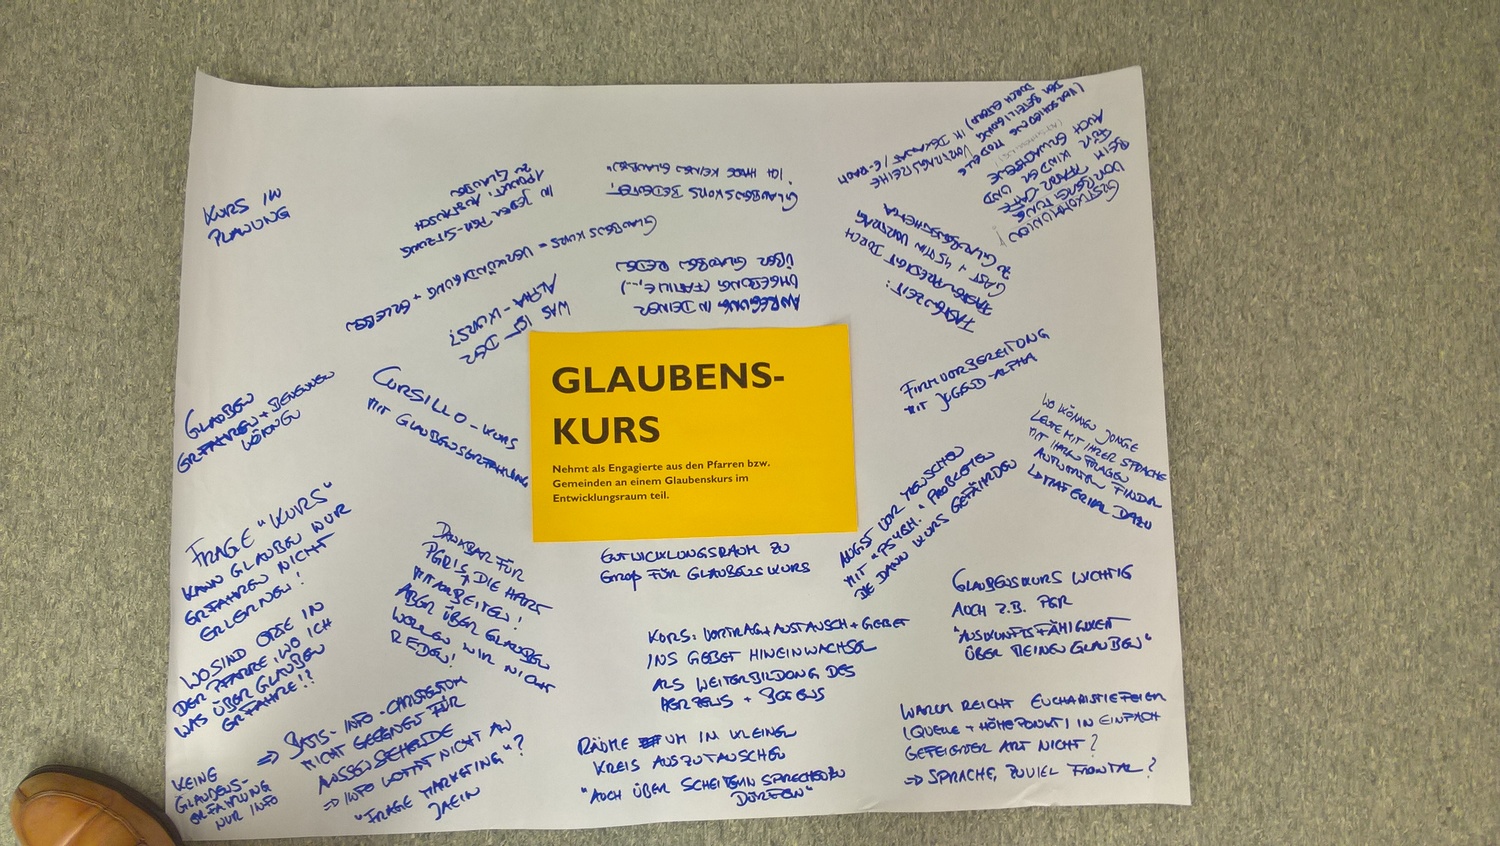 GLAUBENS-
KURS
Nehmt als Engagierte aus den Pfarren bzw.
Gemeinden an einem Glaubenskurs im
Entwicklungsraum teil.
KURS IN
PLANUNG
IN JEDER PGR-SITZUNG
1 PUNKT: AUSTAUSCH
ZU GLAUBEN
GLAUBENSKURS BEDEUTET,
"ICH HABE KEINEN GLAUBEN"
GLAUBENSKURS = VERKÜNDIGUNG + ERLEBEN
WAS IST DER
ALPHA-KURS?
ANREGUNG IN DEINER
UMGEBUNG (FAMILIE,...)
ÜBER GLAUBEN REDEN
VORTRAGSREIHE
IM DEKANAT / E-RAUM
(VERSCHIEDENE MODELLE
DER BETEILIGUNG
DURCH ELTERN)
ERSTKOMMUNION!
VORBEREITUNG
BEIM PFARRCAFE
FÜR KINDER UND
AUCH ERWACHSENE
FASTENZEIT:
FASTENPREDIGT DURCH
GAST + 45 MIN VORTRAG
ZU GLAUBENSTHEMA
GLAUBEN
ERFAHREN + BENENNEN
KÖNNEN
CURSILLO-KURS
MIT GLAUBENSERFAHRUNG
FIRMVORBEREITUNG
MIT JUGEND-ALPHA
WO KÖNNEN JUNGE
LEUTE MIT IHRER SPRACHE
MIT IHREN FRAGEN
ANTWORTEN FINDEN
MATERIAL DAZU
FRAGE "KURS"
KANN GLAUBEN NUR
ERFAHREN NICHT
ERLERNEN!
DANKBAR FÜR
PGR!S, DIE HART
MITARBEITEN!
ABER ÜBER GLAUBEN
WOLLEN WIR NICHT
REDEN!
ENTWICKLUNGSRAUM ZU
GROß FÜR GLAUBENSKURS
ANGST VOR MENSCHEN
MIT "PSYCH." PROBLEMEN
DIE DANN KURS GEFÄHRDEN
GLAUBENSKURS WICHTIG
AUCH Z.B. PGR
"AUSKUNFTSFÄHIGKEIT
ÜBER MEINEN GLAUBEN"
WO SIND ORTE IN
DER PFARRE, WO ICH
WAS ÜBER GLAUBEN
ERFAHRE!?
KURS: VORTRAG + AUSTAUSCH + GEBET
INS GEBET HINEINWACHSEN
ALS WEITERBILDUNG DES
HERZENS +
⇒ BASIS-INFO-CHRISTENTUM
NICHT GEEIGNET FÜR
AUSSENSTEHENDE
⇒ INFO KOMMT NICHT AN
"FRAGE MARKETING"?
JAEIN
KEINE
GLAUBENS-
ERFAHRUNG
NUR INFO
RÄUME UM IN KLEINEN
KREIS AUSZUTAUSCHEN
"AUCH ÜBER SCHEITERN SPRECHEN ZU
DÜRFEN"
WARUM REICHT EUCHARISTIEFEIER
(QUELLE + HÖHEPUNKT) IN EINFACH
GEFEIERTER ART NICHT?
⇒ SPRACHE, ZUVIEL FRONTAL?